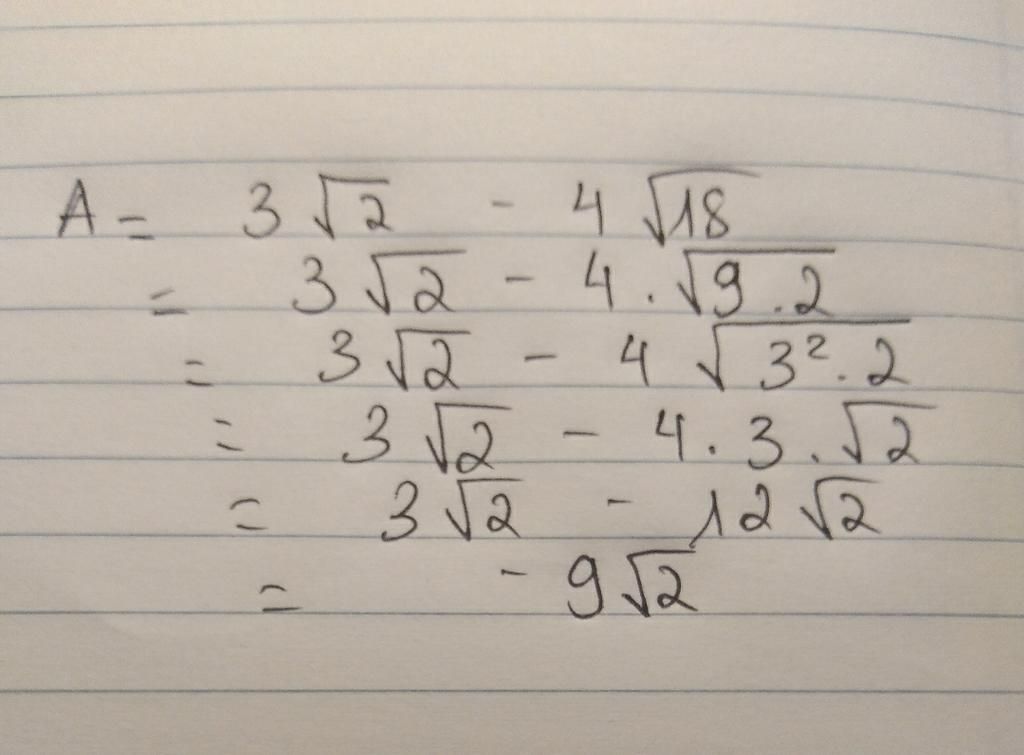 A = 3√2 - 4√18
= 3√2 - 4.√9.2
= 3√2 - 4√3².2
= 3√2 - 4.3.√2
= 3√2 - 12√2
= - 9√2